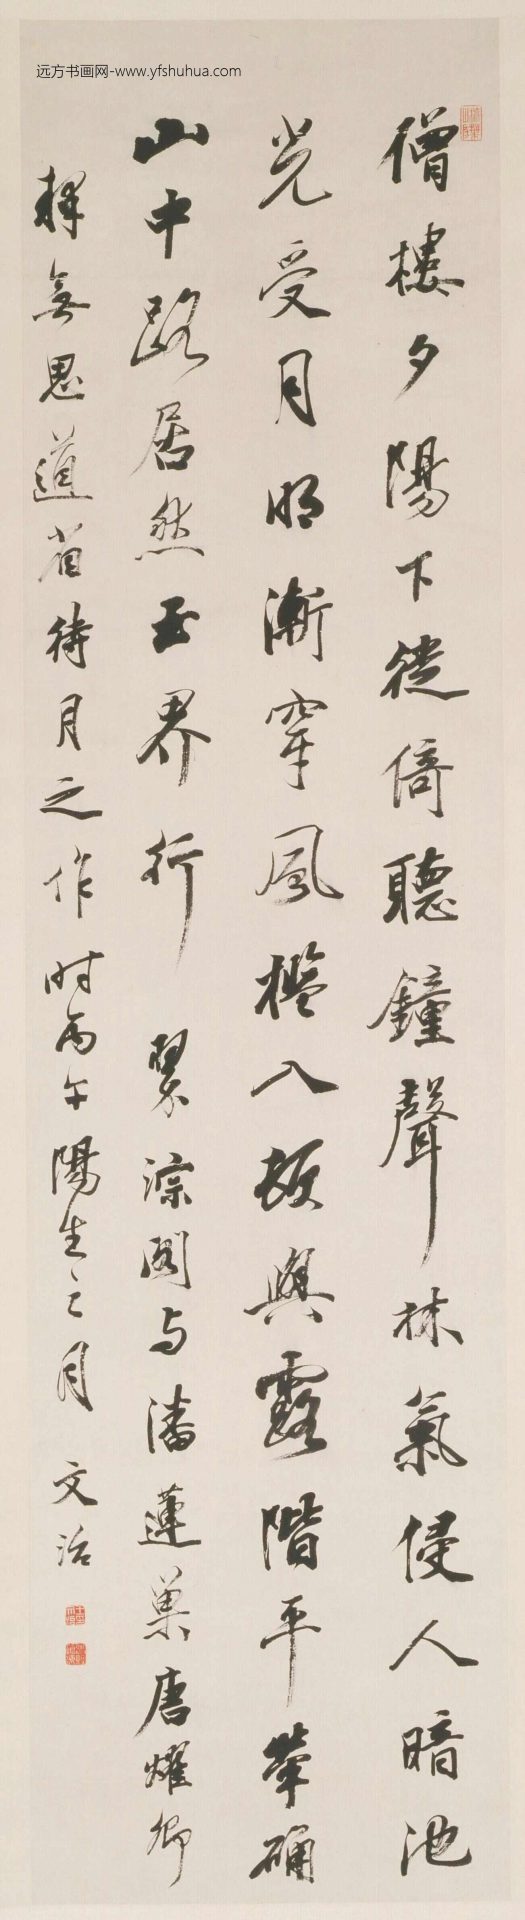 远方书画网-www.yfshuhua.com
僧樓夕陽下徙倚聽鐘聲林氣侵人暗池
光受月明漸穿風檻入頓與露階平犖确
山中路居然玉界行 翠淙閣与潘蓮巢唐燿卿
釋無思道省待月之作时丙午陽生之月 文治